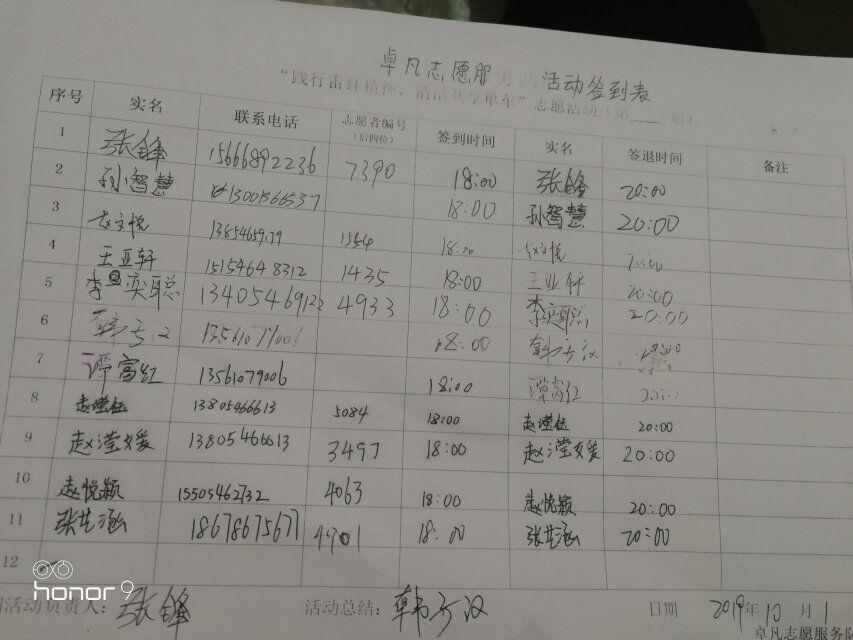 卓凡志愿服 活动签到表
“践行雷锋精神，清洁共享单车”志愿活动（第 期）
序号 实名 联系电话 志愿者编号（后四位） 签到时间 实名 签退时间 备注
1 张锋 15666892236 7390 18:00 张锋 20:00
2 孙智慧 13001566537 18:00 孙智慧 20:00
3 18:00
4 王亚轩 15154648312 1435 18:00 王亚轩 20:00
5 李奕聪 13405469122 4933 18:00 20:00
6 13561079006 18:00
7 谭富红 13561079006 18:00 谭富红
8 13805466613 5084 18:00 20:00
9 赵滢媛 13805466613 3497 18:00 赵滢媛 20:00
10 赵悦颖 15505462732 4063 18:00 赵悦颖 20:00
11 张芷涵 18678675677 4901 18:00 张芷涵 20:00
12
活动负责人： 张锋 活动总结： 日期 2019年10月1
卓凡志愿服务队
honor 9